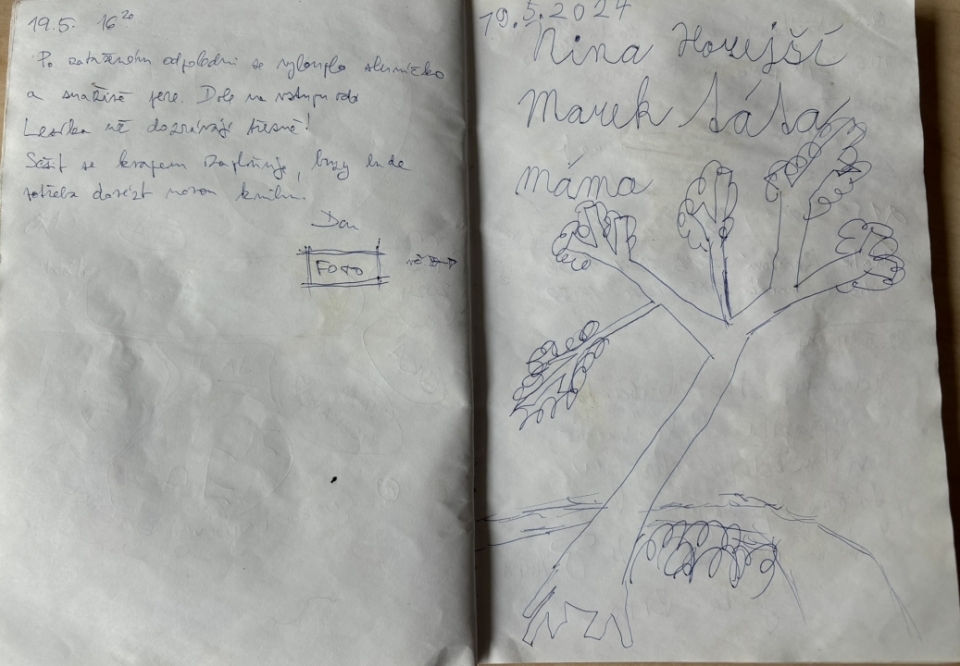 19.5. 16²⁰
Po zataženém odpoledni se vylouplo sluníčko
a snaživě peče. Dole na vstupu do
Lesíka už dozrávají třešně!
Sešit se krapem zaplňuje, brzy bude
potřeba dovézt novou knihu.
Dan
FOTO
19.5.2024
Nina Hořejší
Marek táta
máma